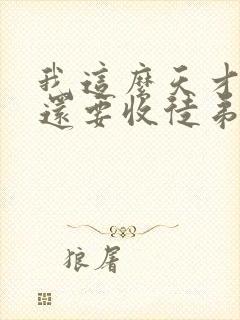 我這麼天才
還要收徒弟
狼屠